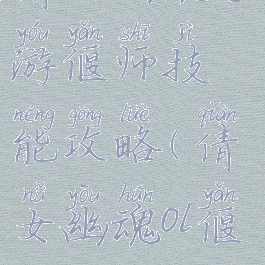 yóu yǎn shī jì
游偃师技
néng gōng lüè qiàn
能攻略(倩
nǚ yōu hún yǎn
女幽魂ol偃